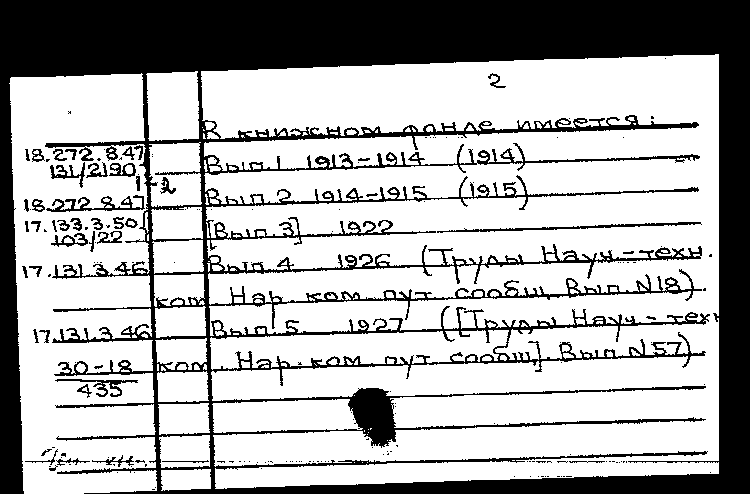 2
В книжном фонде имеется:
18.272.8.47 Вып. 1 1913-1914 (1914)
131/2190
1-2
18.272.8.47 Вып. 2 1914-1915 (1915)
17.133.3.50 [Вып. 3] 1922
103/22
17.131.3.46 Вып. 4 1926 (Труды Науч-техн.
ком. Нар. ком. пут. сообщ. Вып. N18)
17.131.3.46 Вып. 5. 1927 ([Труды Науч-техн
30-18 ком. Нар. ком. пут. сообщ.] Вып. N57)
435